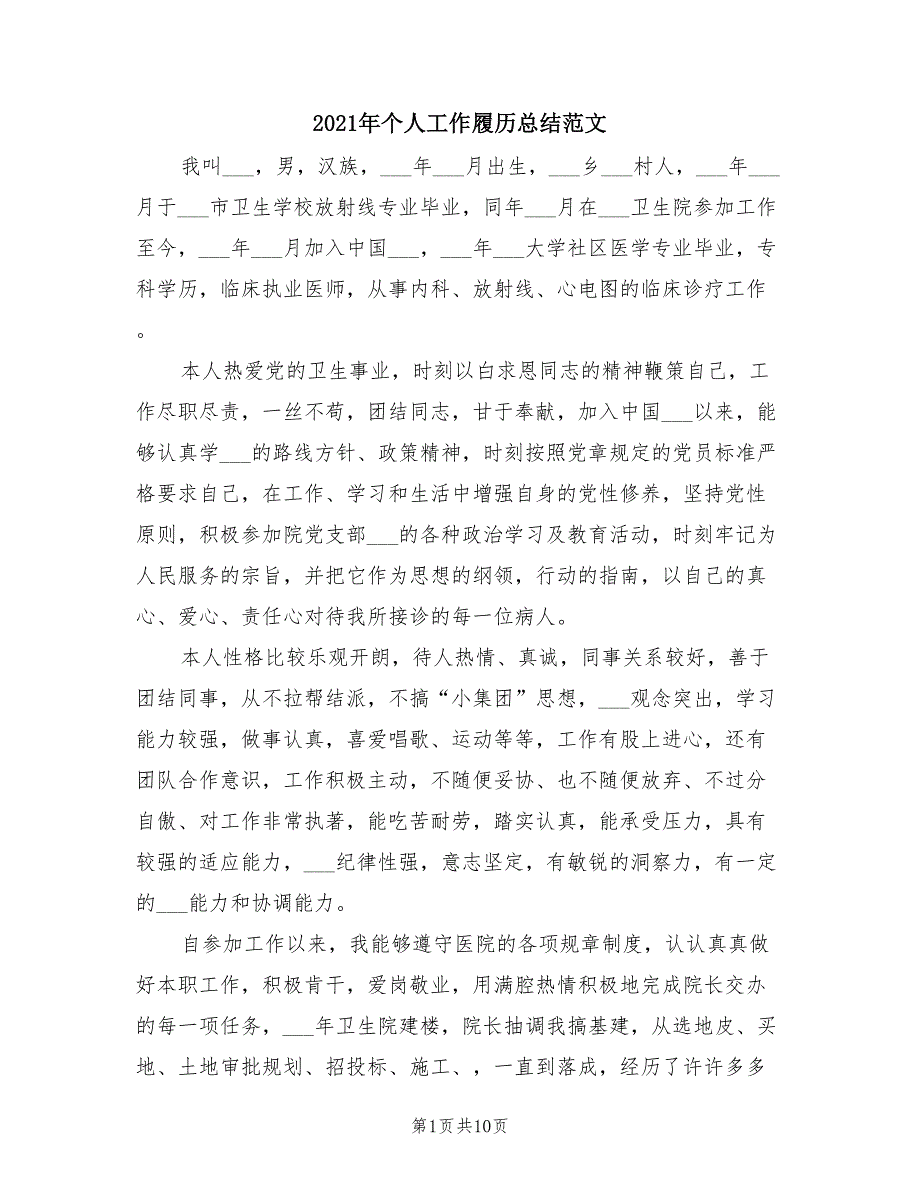 2021年个人工作履历总结范文
我叫___，男，汉族，___年___月出生，___乡___村人，___年___
月于___市卫生学校放射线专业毕业，同年___月在___卫生院参加工作
至今，___年___月加入中国___，___年___大学社区医学专业毕业，专
科学历，临床执业医师，从事内科、放射线、心电图的临床诊疗工作
。
本人热爱党的卫生事业，时刻以白求恩同志的精神鞭策自己，工
作尽职尽责，一丝不苟，团结同志，甘于奉献，加入中国___以来，能
够认真学___的路线方针、政策精神，时刻按照党章规定的党员标准严
格要求自己，在工作、学习和生活中增强自身的党性修养，坚持党性
原则，积极参加院党支部___的各种政治学习及教育活动，时刻牢记为
人民服务的宗旨，并把它作为思想的纲领，行动的指南，以自己的真
心、爱心、责任心对待我所接诊的每一位病人。
本人性格比较乐观开朗，待人热情、真诚，同事关系较好，善于
团结同事，从不拉帮结派，不搞“小集团”思想，___观念突出，学习
能力较强，做事认真，喜爱唱歌、运动等等，工作有股上进心，还有
团队合作意识，工作积极主动，不随便妥协、也不随便放弃、不过分
自傲、对工作非常执著，能吃苦耐劳，踏实认真，能承受压力，具有
较强的适应能力，___纪律性强，意志坚定，有敏锐的洞察力，有一定
的___能力和协调能力。
自参加工作以来，我能够遵守医院的各项规章制度，认认真真做
好本职工作，积极肯干，爱岗敬业，用满腔热情积极地完成院长交办
的每一项任务，___年卫生院建楼，院长抽调我搞基建，从选地皮、买
地、土地审批规划、招投标、施工、，一直到落成，经历了许许多多
第1页共10页